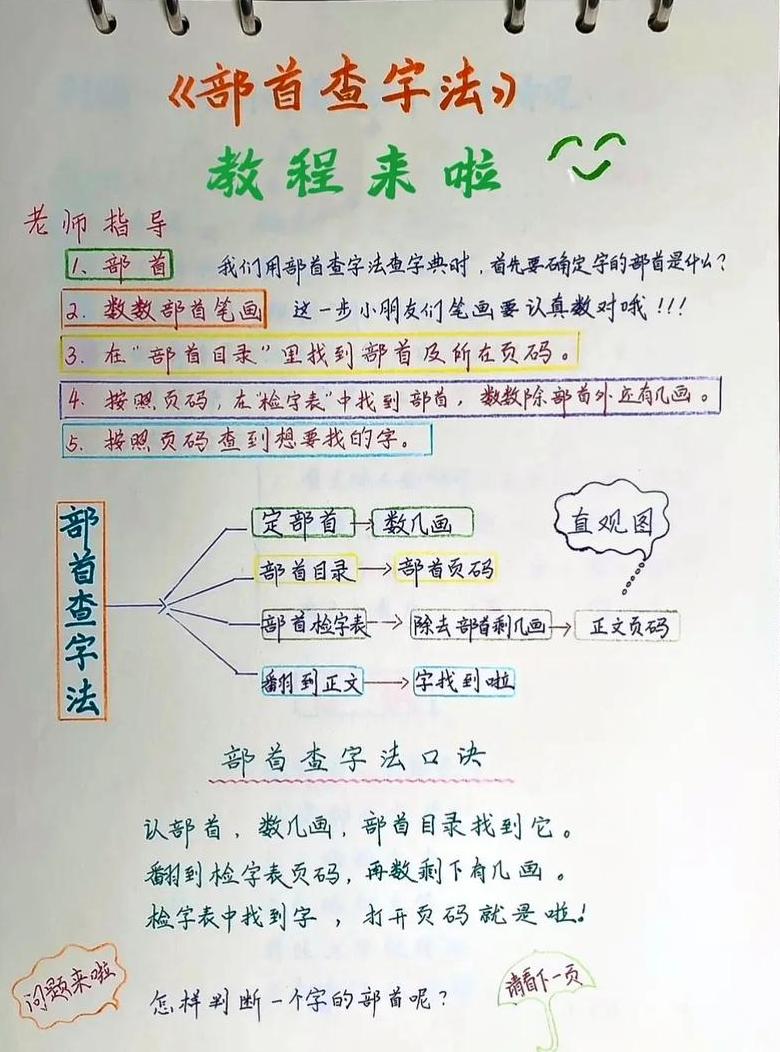 《部首查字法》
教程来啦
老师指导
1、部首 我们用部首查字法查字典时，首先要确定字的部首是什么？
2. 数数部首笔画 这一步小朋友们笔画要认真数对哦！！！
3. 在“部首目录”里找到部首及所在页码。
4. 按照页码，在“检字表”中找到部首，数数除部首外还有几画。
5. 按照页码查到想要找的字。
部首查字法
定部首→数几画
直观图
部首目录→部首页码
部首检字表→除去部首剩几画→正文页码
翻到正文→字找到啦
部首查字法口诀
认部首，数几画，部首目录找到它。
翻到检字表页码，再数剩下有几画。
检字表中找到字，打开页码就是啦！
问题来啦
怎样判断一个字的部首呢？
请看下一页